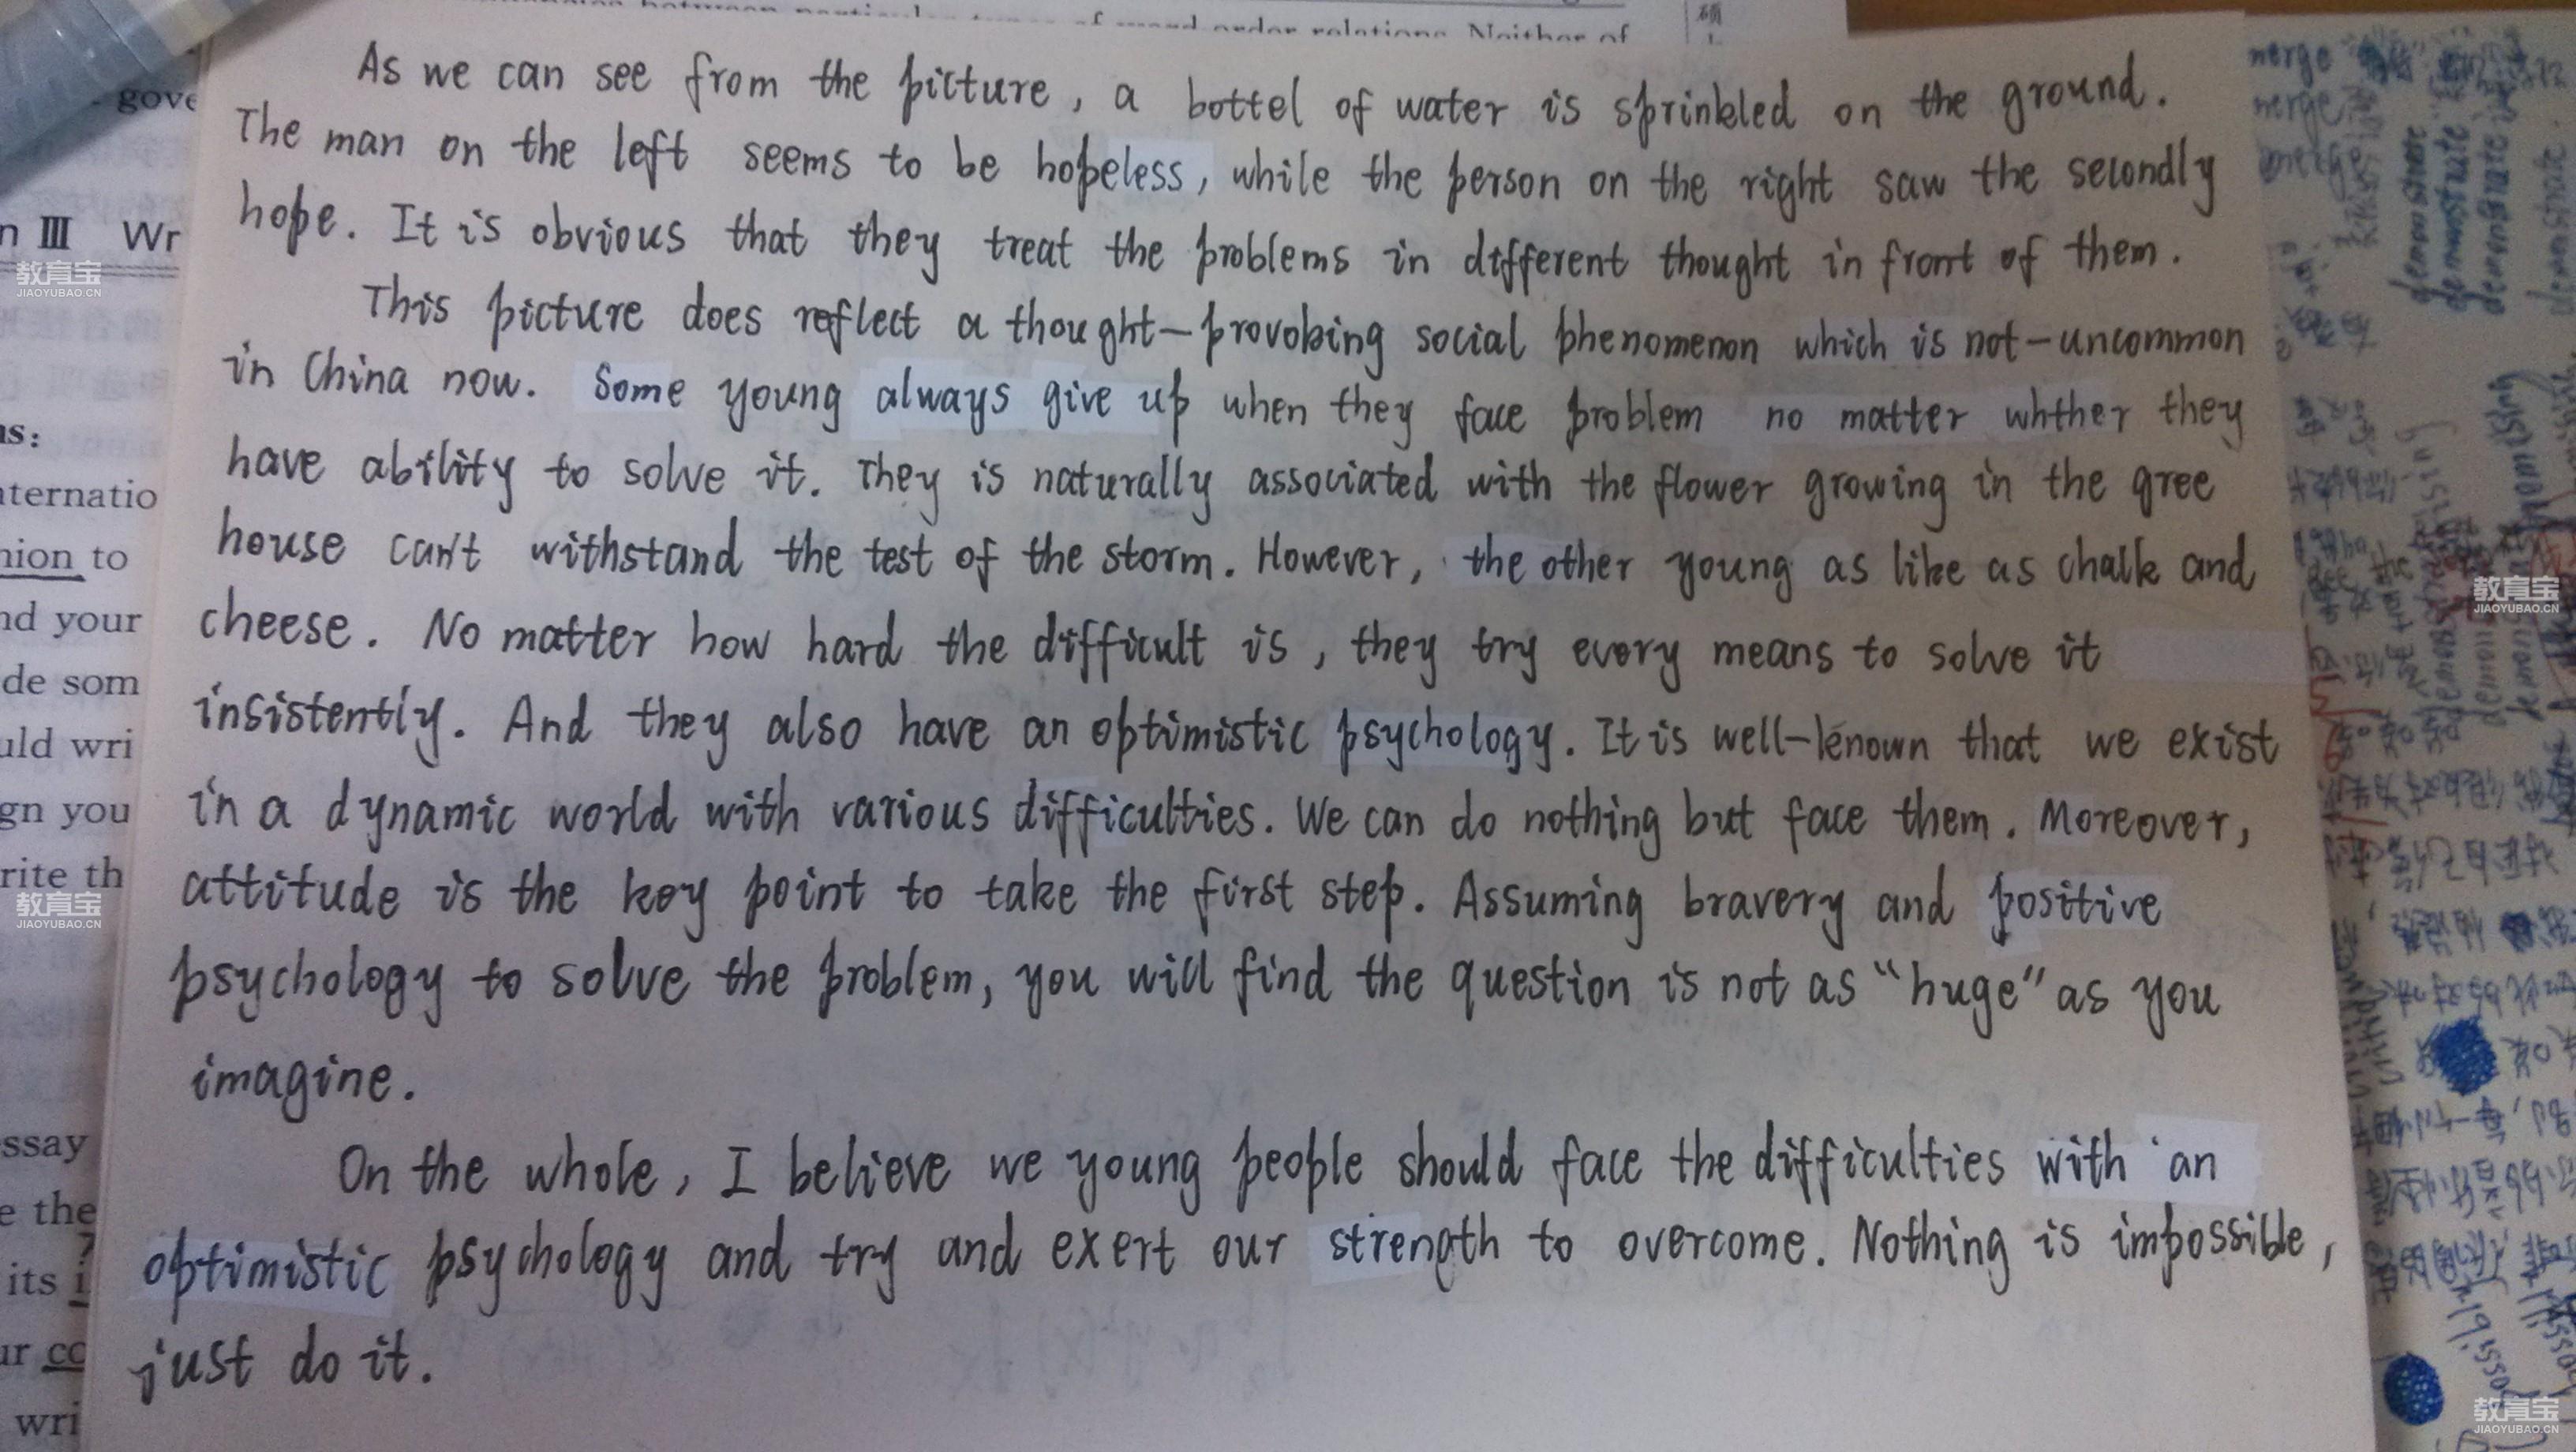 As we can see from the picture, a bottel of water is sprinkled on the ground.
The man on the left seems to be hopeless, while the person on the right saw the secondly
hope. It is obvious that they treat the problems in different thought in front of them.
This picture does reflect a thought-provoking social phenomenon which is not-uncommon
in China now. Some young always give up when they face problem no matter whther they
have ability to solve it. They is naturally associated with the flower growing in the gree
house can't withstand the test of the storm. However, the other young as like as chalk and
cheese. No matter how hard the difficult is, they try every means to solve it
insistently. And they also have an optimistic psychology. It is well-known that we exist
in a dynamic world with various difficulties. We can do nothing but face them. Moreover,
attitude is the key point to take the first step. Assuming bravery and positive
psychology to solve the problem, you will find the question is not as "huge" as you
imagine.
On the whole, I believe we young people should face the difficulties with an
optimistic psychology and try and exert our strength to overcome. Nothing is impossible,
just do it.
gove
n III Wr
ns:
nternatio
nion to
nd your
de som
uld wri
gn you
rite th
ssay
e the
its i
ur co
wri
order relations. Neither of
硕
merge
merge
merge
demonstrate
demonstrate
教育宝
JIAOYUBAO.CN
教育宝
JIAOYUBAO.CN
教育宝
JIAOYUBAO.CN
教育宝
JIAOYUBAO.CN